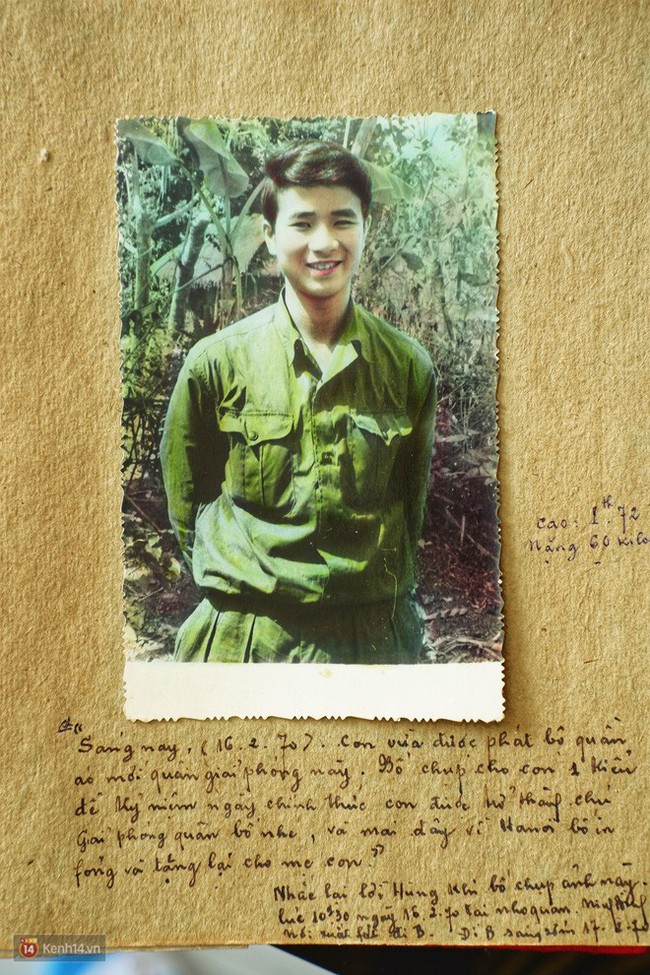 cao: 1th.72
nặng 60 kilo
"Sáng nay, (16.2.70). Con vừa được phát bộ quần
áo mới quân giải phóng này. Bố chụp cho con 1 kiểu
để kỷ niệm ngày chính thức con được trở thành chú
Giải phóng quân bố nhé, và mai đây về Hanoi bố in
fóng và tặng lại cho mẹ con"
Nhắc lại lời Hùng khi bố chụp ảnh này.
lúc 10h30 ngày 16.2.70 tại nhoquan. Ninh
Nơi xuất fát đi B. Đi B sáng sớm 17.2.70
14 Kenh14.vn